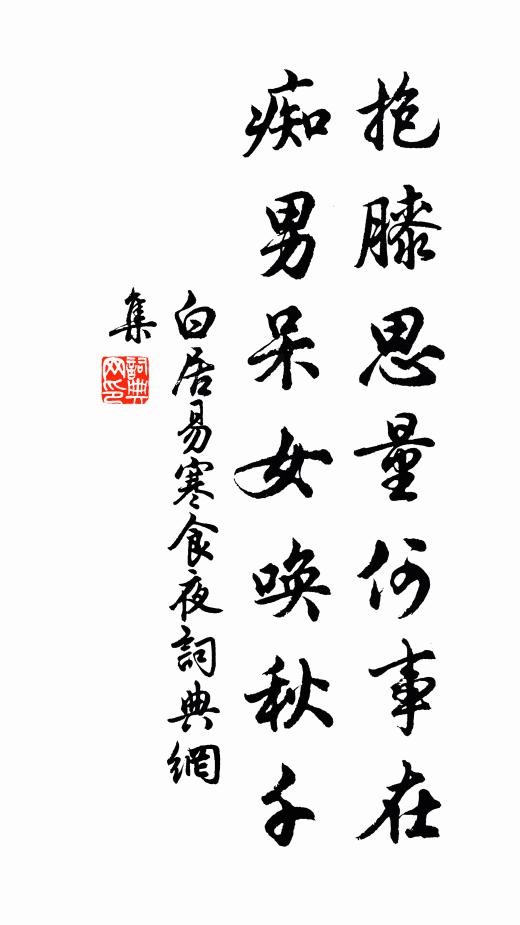 抱膝思量何事在
痴男呆女唤秋千
白居易寒食夜詞典網
集
詞典
网印